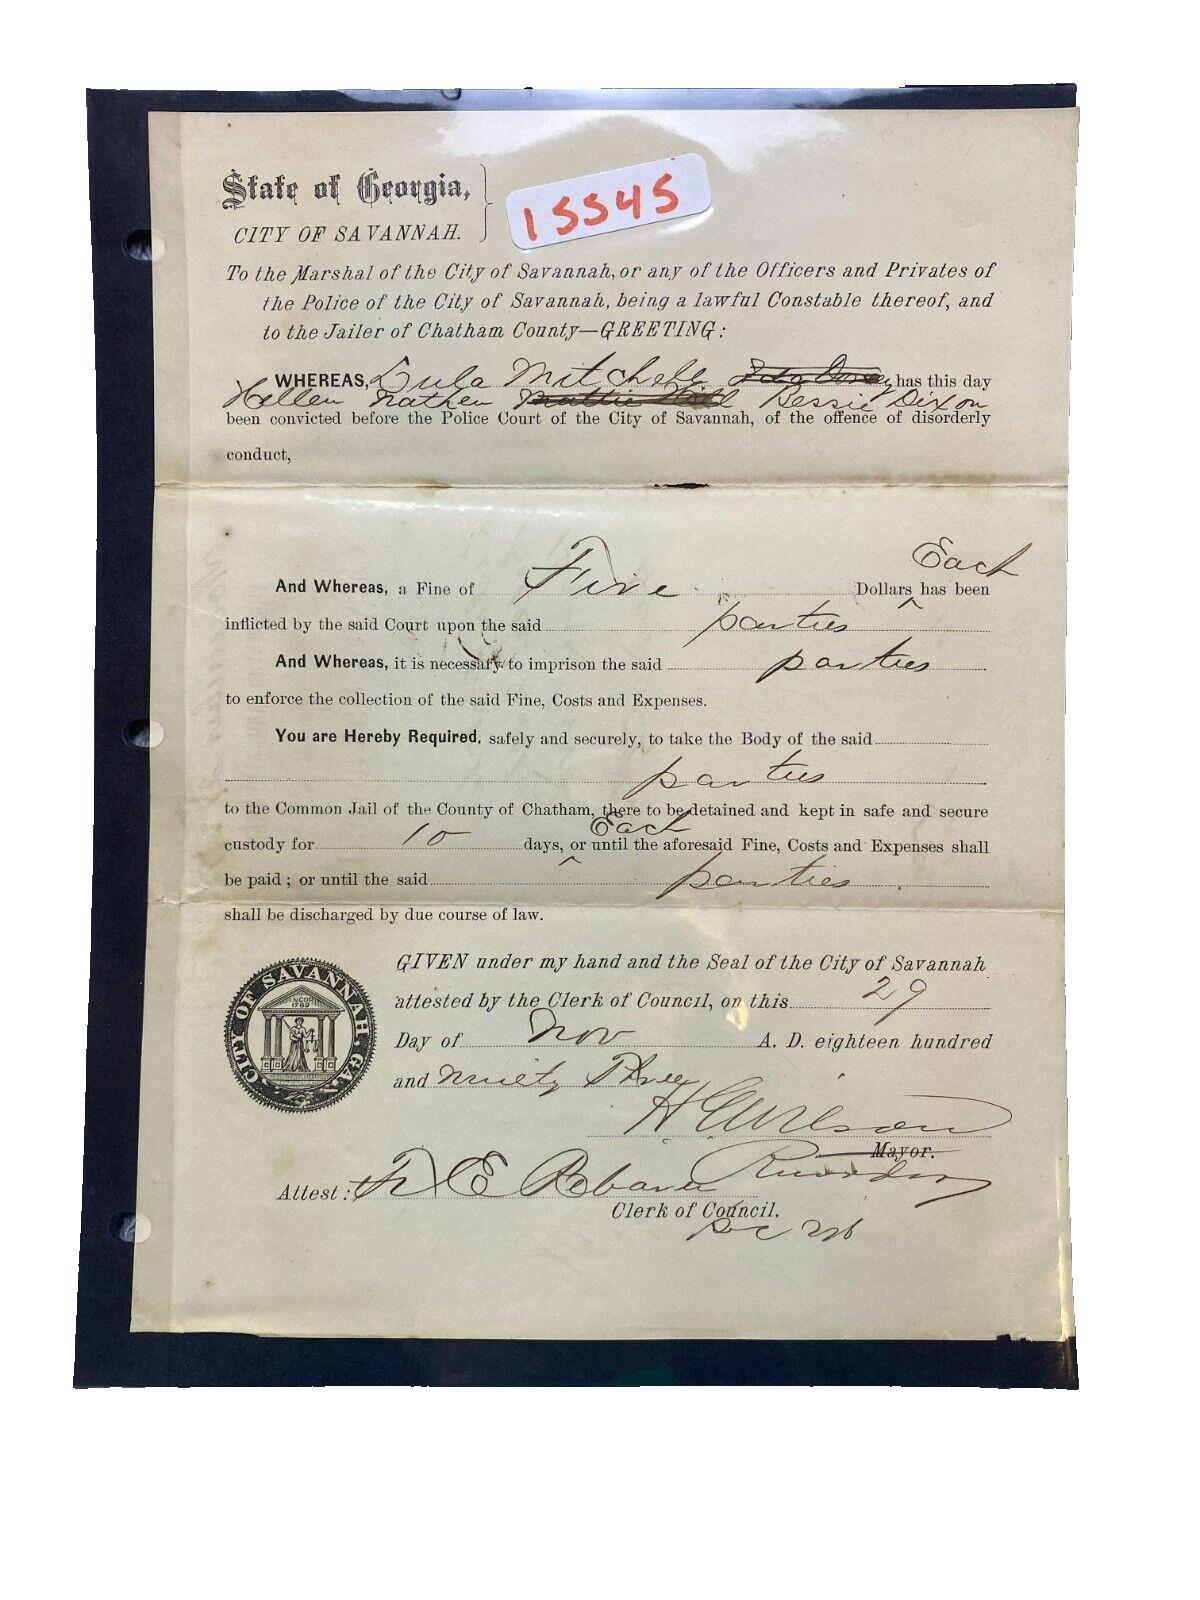 State of Georgia,
CITY OF SAVANNAH.
15545
To the Marshal of the City of Savannah, or any of the Officers and Privates of
the Police of the City of Savannah, being a lawful Constable thereof, and
to the Jailer of Chatham County—GREETING:
WHEREAS, Lula Mitchell has this day
Hellen Nathen Mattie Bessie Dixon
been convicted before the Police Court of the City of Savannah, of the offence of disorderly
conduct,
Each
And Whereas, a Fine of Five Dollars ^ has been
inflicted by the said Court upon the said parties
And Whereas, it is necessary to imprison the said parties
to enforce the collection of the said Fine, Costs and Expenses.
You are Hereby Required, safely and securely, to take the Body of the said
parties
to the Common Jail of the County of Chatham, there to be detained and kept in safe and secure
Each
custody for 10 days, ^ or until the aforesaid Fine, Costs and Expenses shall
be paid; or until the said parties
shall be discharged by due course of law.
CITY OF SAVANNAH, GA.
INCOR'D
1789
GIVEN under my hand and the Seal of the City of Savannah
attested by the Clerk of Council, on this 29
Day of Nov A. D. eighteen hundred
and ninety Three
Wilson
Mayor.
Attest: E
Clerk of Council.